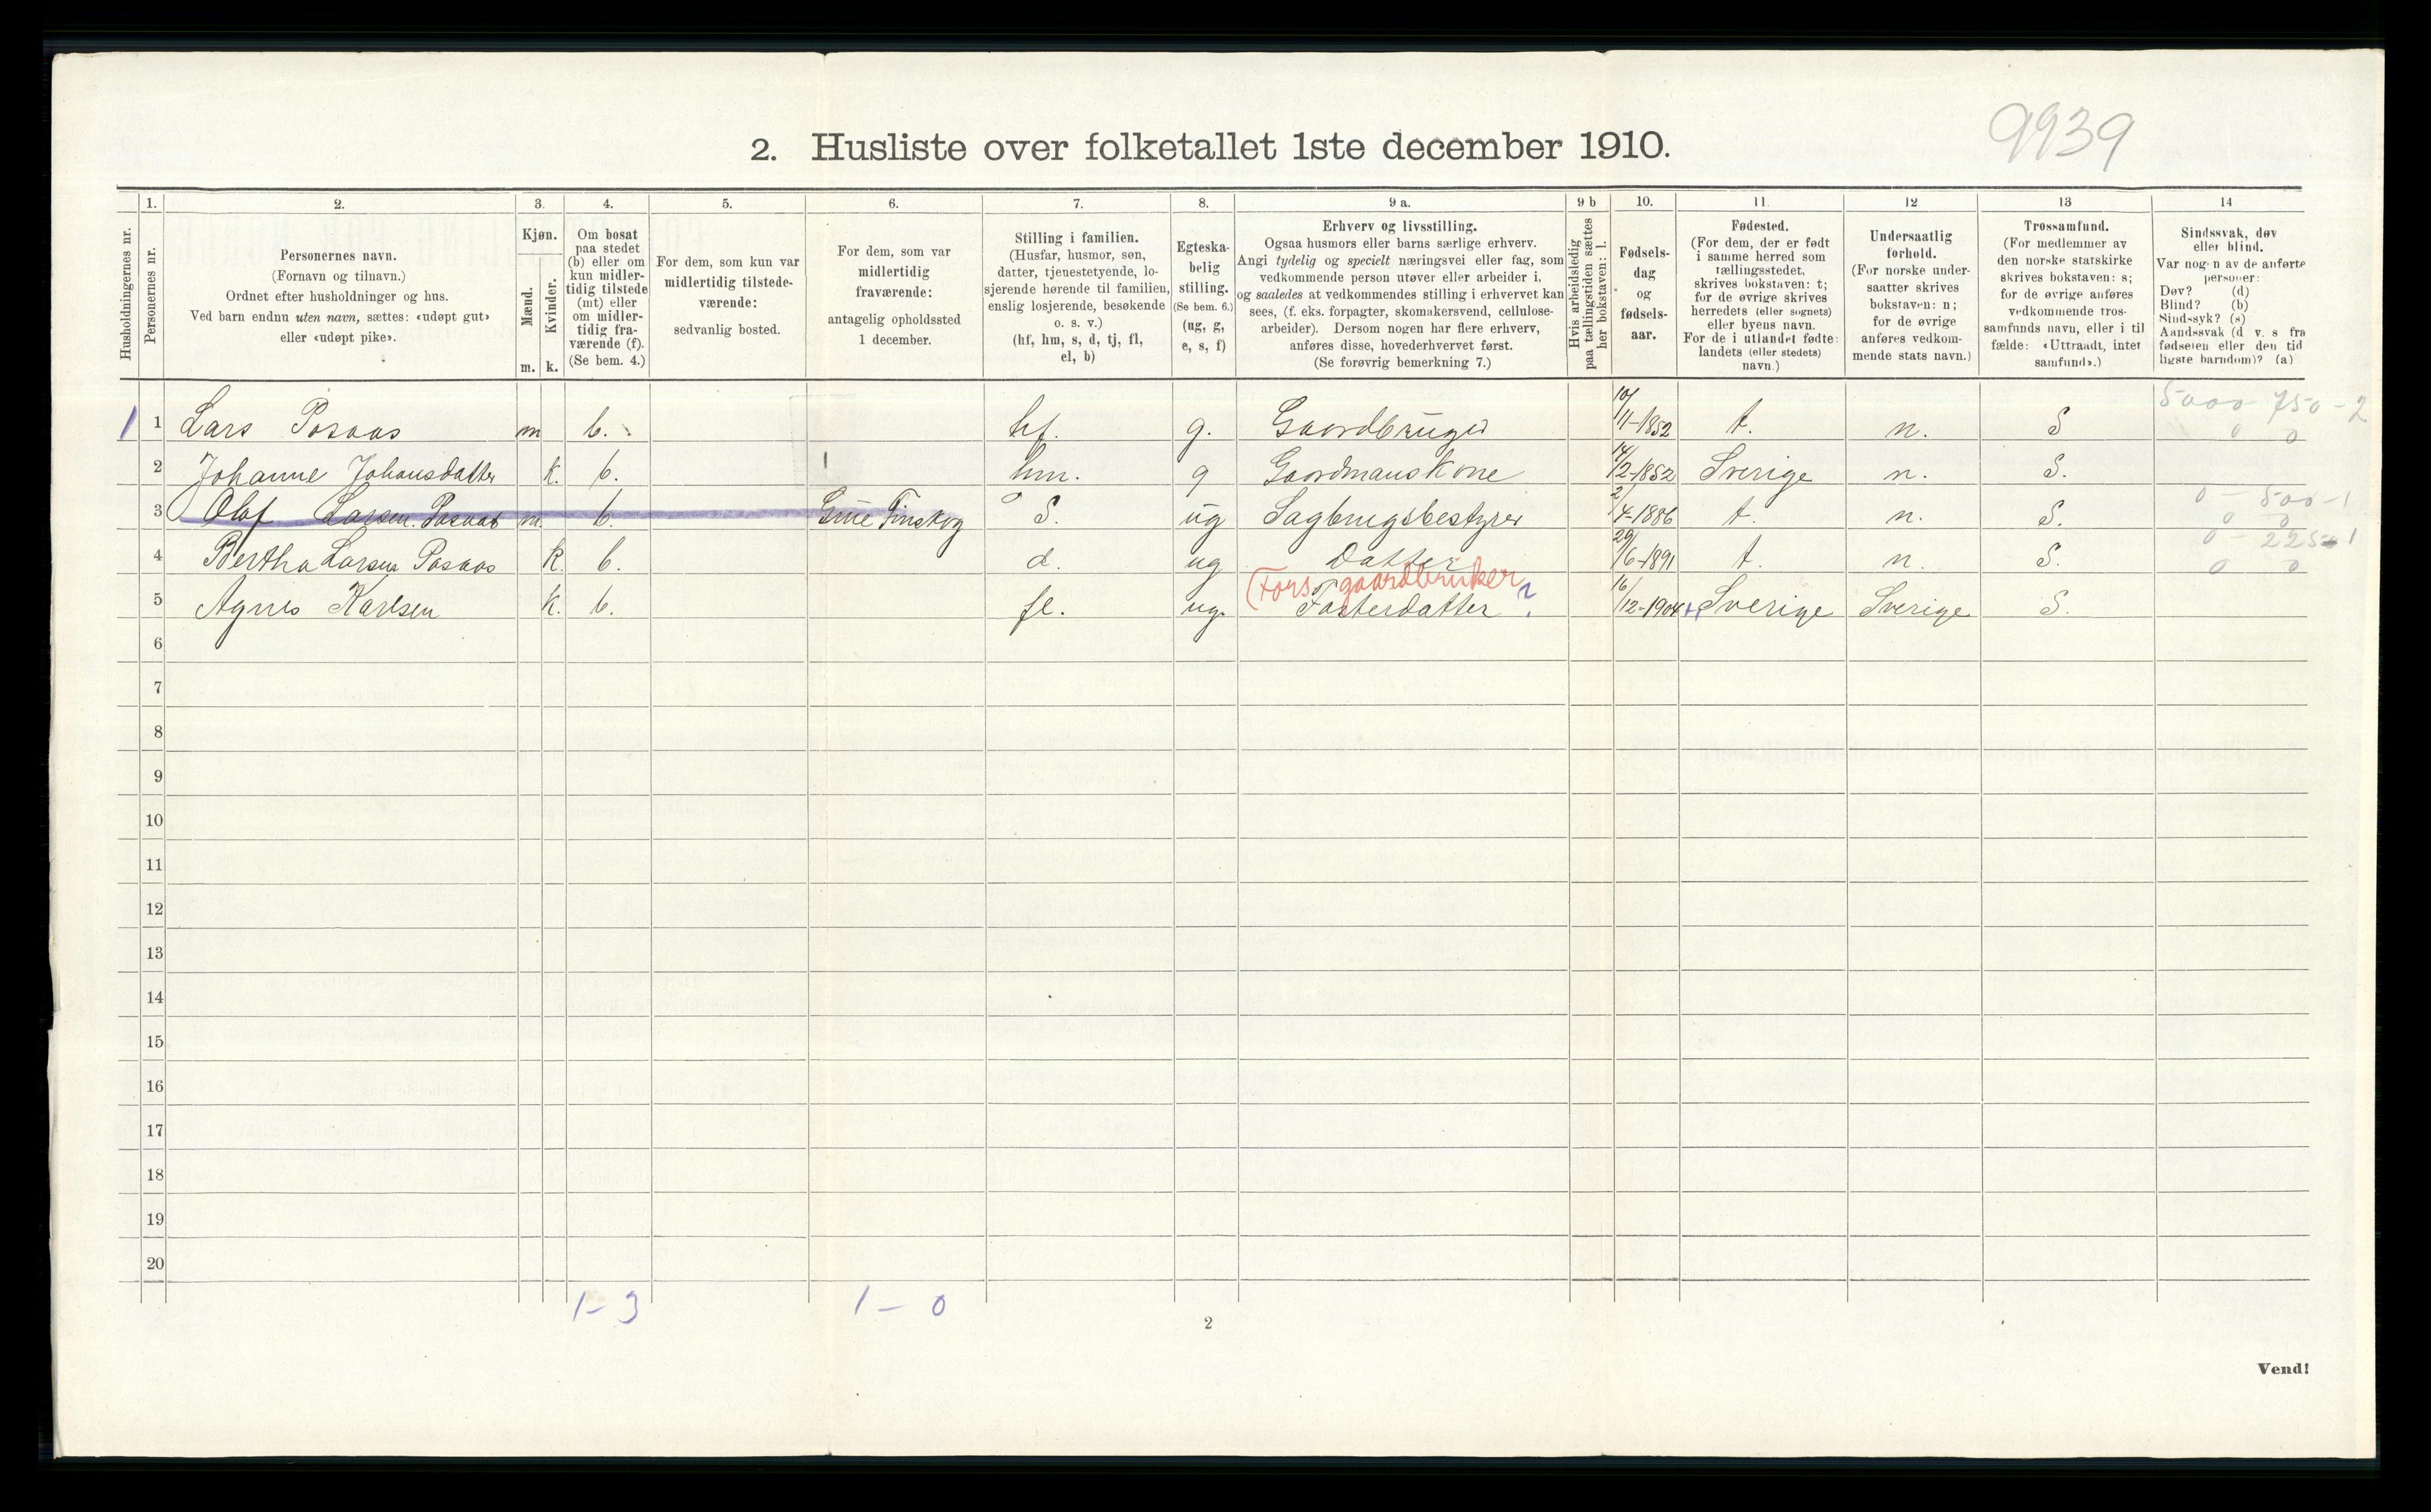 9939
2. Husliste over folketallet 1ste december 1910.
Husholdningernes nr.
1. Personernes nr.
2. Personernes navn.
(Fornavn og tilnavn.)
Ordnet efter husholdninger og hus.
Ved barn endnu uten navn, sættes: «udøpt gut»
eller «udøpt pike».
3. Kjøn.
Mænd. m.
Kvinder. k.
4. Om bosat
paa stedet
(b) eller om
kun midler-
tidig tilstede
(mt) eller
om midler-
tidig fra-
værende (f).
(Se bem. 4.)
5. For dem, som kun var
midlertidig tilstede-
værende:
sedvanlig bosted.
6. For dem, som var
midlertidig
fraværende:
antagelig opholdssted
1 december.
7. Stilling i familien.
(Husfar, husmor, søn,
datter, tjenestetyende, lo-
sjerende hørende til familien,
enslig losjerende, besøkende
o. s. v.)
(hf, hm, s, d, tj, fl,
el, b)
8. Egteska-
belig
stilling.
(Se bem. 6.)
(ug, g,
e, s, f)
9 a. Erhverv og livsstilling.
Ogsaa husmors eller barns særlige erhverv.
Angi tydelig og specielt næringsvei eller fag, som
vedkommende person utøver eller arbeider i,
og saaledes at vedkommendes stilling i erhvervet kan
sees, (f. eks. forpagter, skomakersvend, cellulose-
arbeider). Dersom nogen har flere erhverv,
anføres disse, hovederhvervet først.
(Se forøvrig bemerkning 7.)
9 b Hvis arbeidsledig
paa tællingstiden sættes
her bokstaven: l.
10. Fødsels-
dag
og
fødsels-
aar.
11. Fødested.
(For dem, der er født
i samme herred som
tællingsstedet,
skrives bokstaven: t;
for de øvrige skrives
herredets (eller sognets)
eller byens navn.
For de i utlandet fødte:
landets (eller stedets)
navn.)
12 Undersaatlig
forhold.
(For norske under-
saatter skrives
bokstaven: n;
for de øvrige
anføres vedkom-
mende stats navn.)
13 Trossamfund.
(For medlemmer av
den norske statskirke
skrives bokstaven: s;
for de øvrige anføres
vedkommende tros-
samfunds navn, eller i til
fælde: «Uttraadt, intet
samfund».)
14 Sindssvak, døv
eller blind.
Var nogen av de anførte
personer:
Døv? (d)
Blind? (b)
Sindssyk? (s)
Aandssvak (d v. s fra
fødselen eller den tid
ligste barndom)? (a)
5000 750 - 2
1 1 Lars Posaas m b. hf. g. Gaardbruger 10/11-1852 t. n. S 0 0
2 Johanne Johansdatter k. b. hm. g Gaardmanskone 14/2-1852 Sverige n. S.
0 - 500 - 1
3 Olaf Larsen Posaas m. b. Grue Finskog S. ug Sagbrugsbestyrer 2/4-1886 t. n. S. 0 0
0 - 225 - 1
4 Bertha Larsen Posaas k. b. d. ug Datter 29/6-1891 t. n. S. 0 0
(Fors. gaardbruker
5 Agnes Karlsen k. b. fl. ug. Fosterdatter ? 16/12-1904 Sverige Sverige S.
6
7
8
9
10
11
12
13
14
15
16
17
18
19
20
1 - 3 1 - 0
2
Vend!